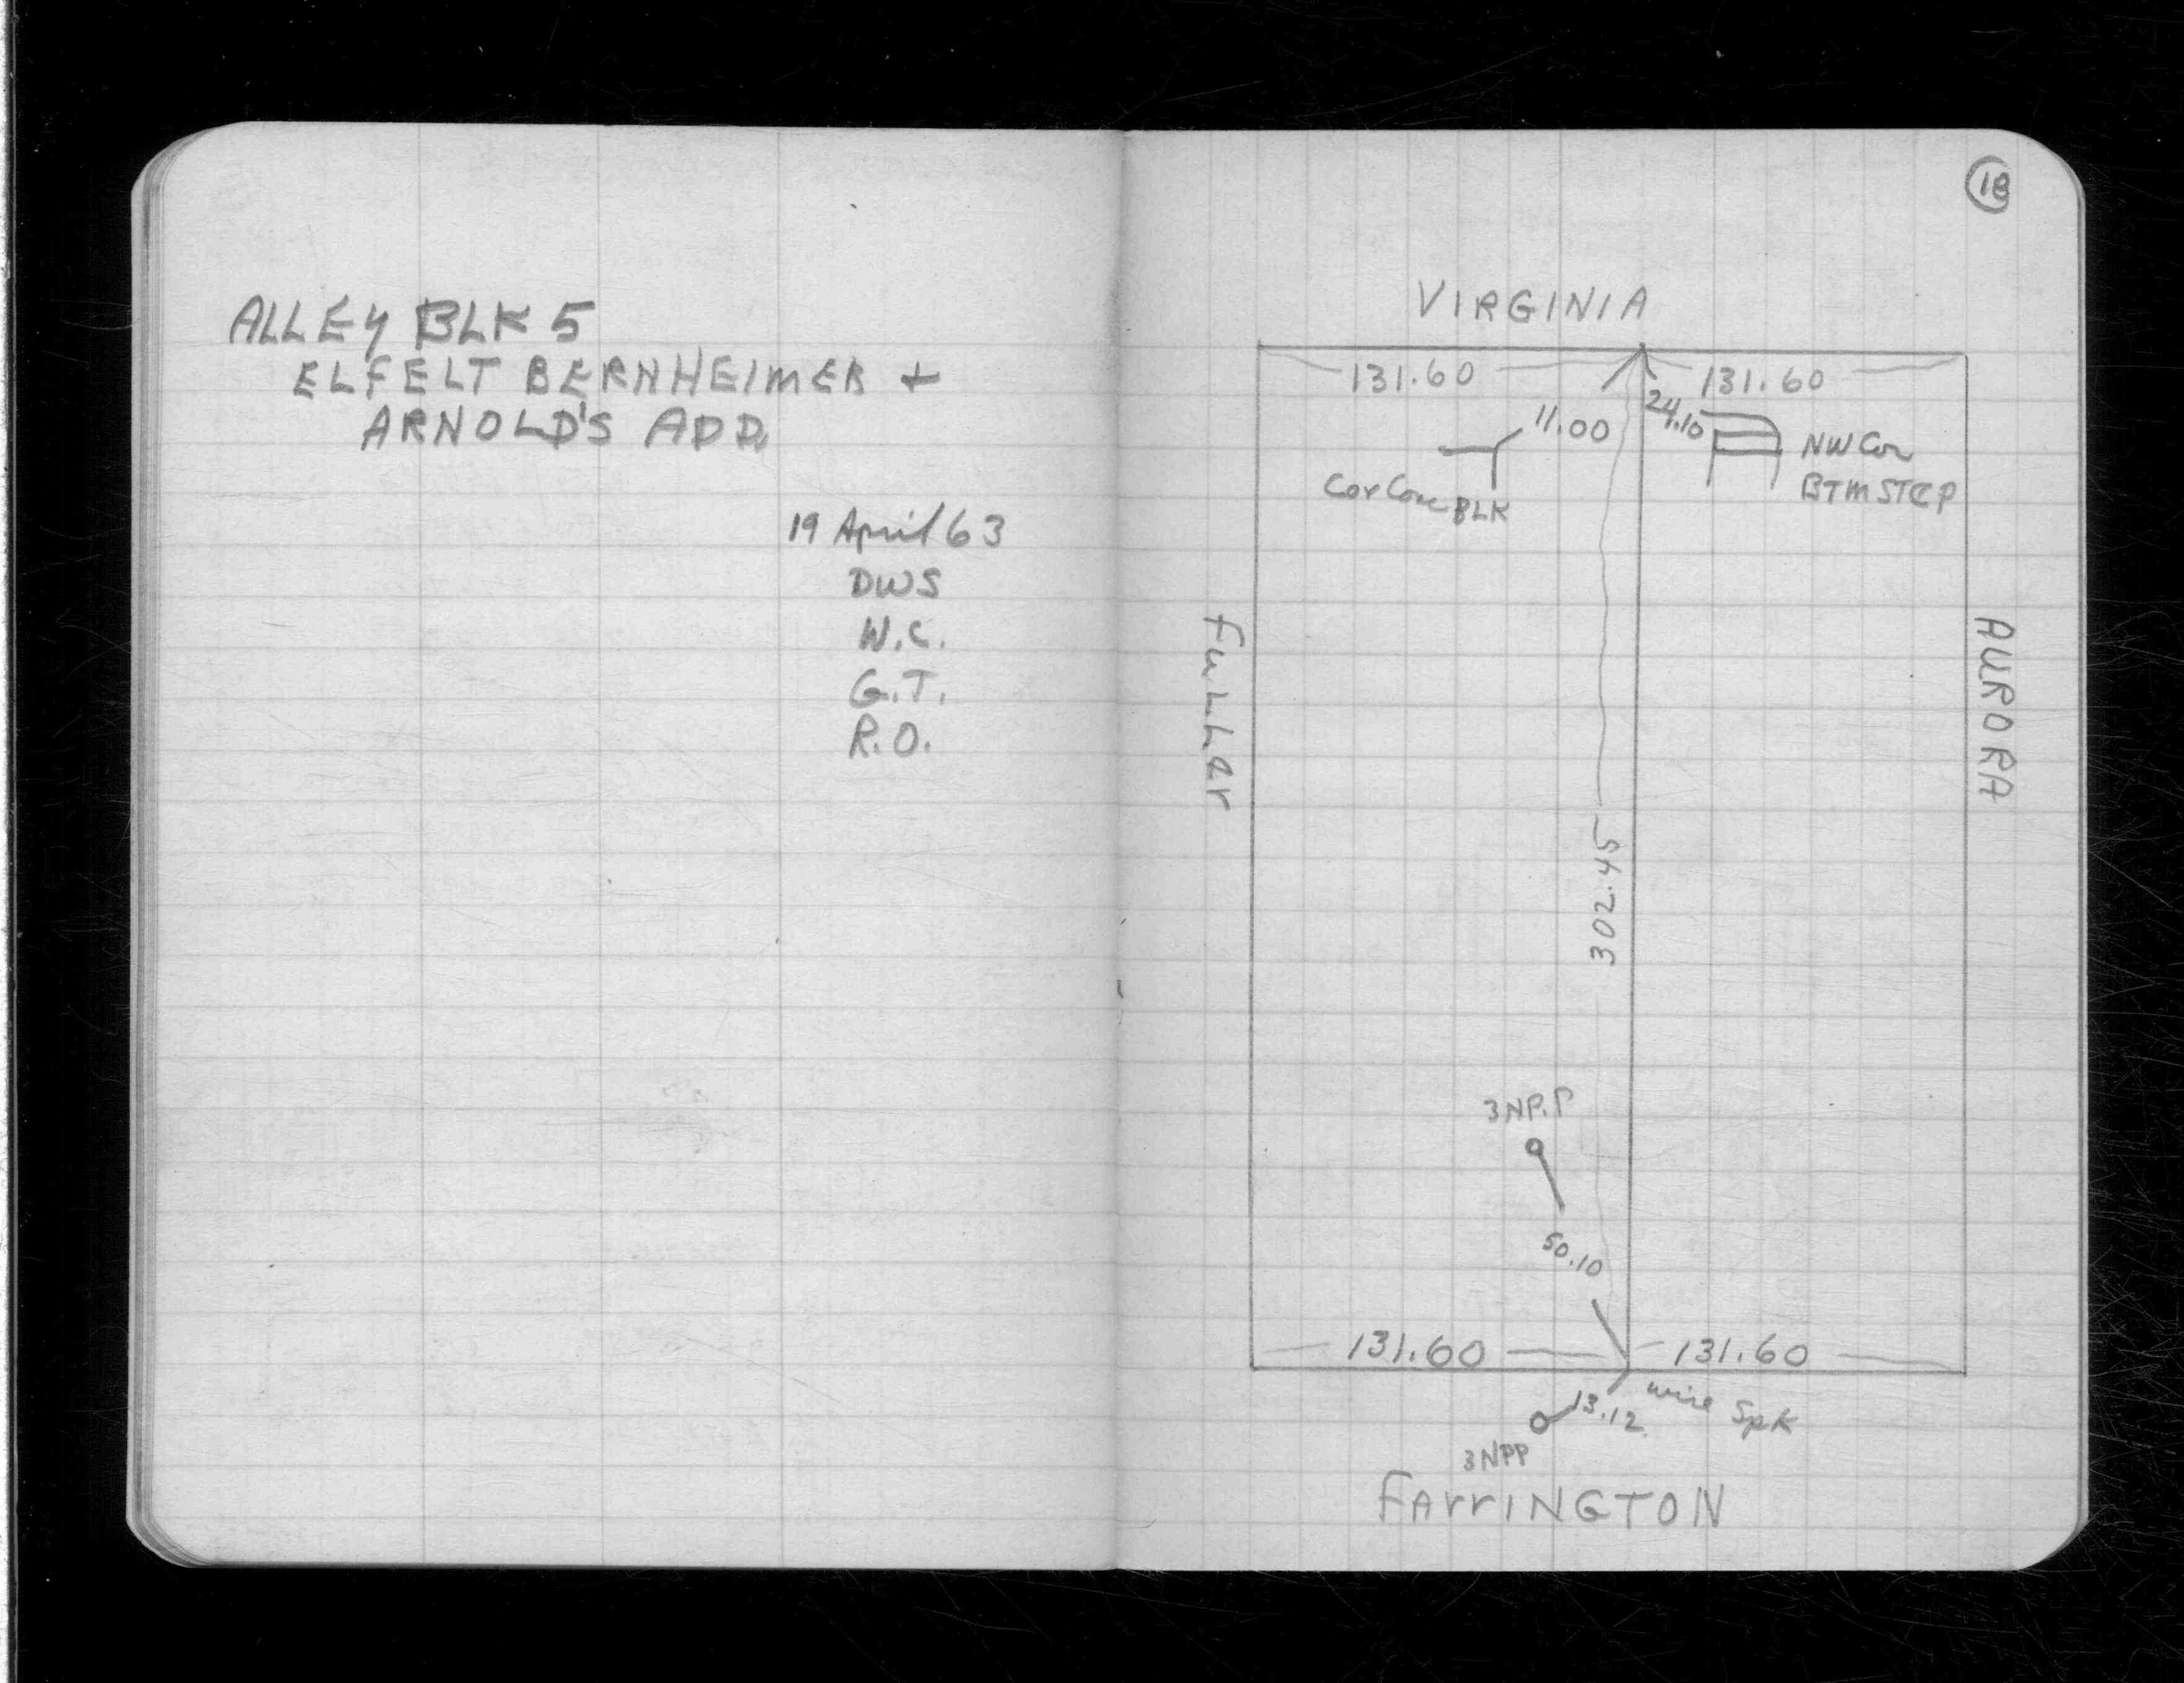 ALLEY BLK 5
ELFELT BERNHEIMER +
ARNOLD'S ADD.
19 April 63
DWS
W.C.
G.T.
R.O.
18
VIRGINIA
131.60
131.60
11.00
24.10
Cor Conc BLK
NW Cor
BTM STEP
FuLLer
AURORA
302.45
3NP.P
50.10
131.60
131.60
13.12
wire Spk
3NPP
FArrINGTON